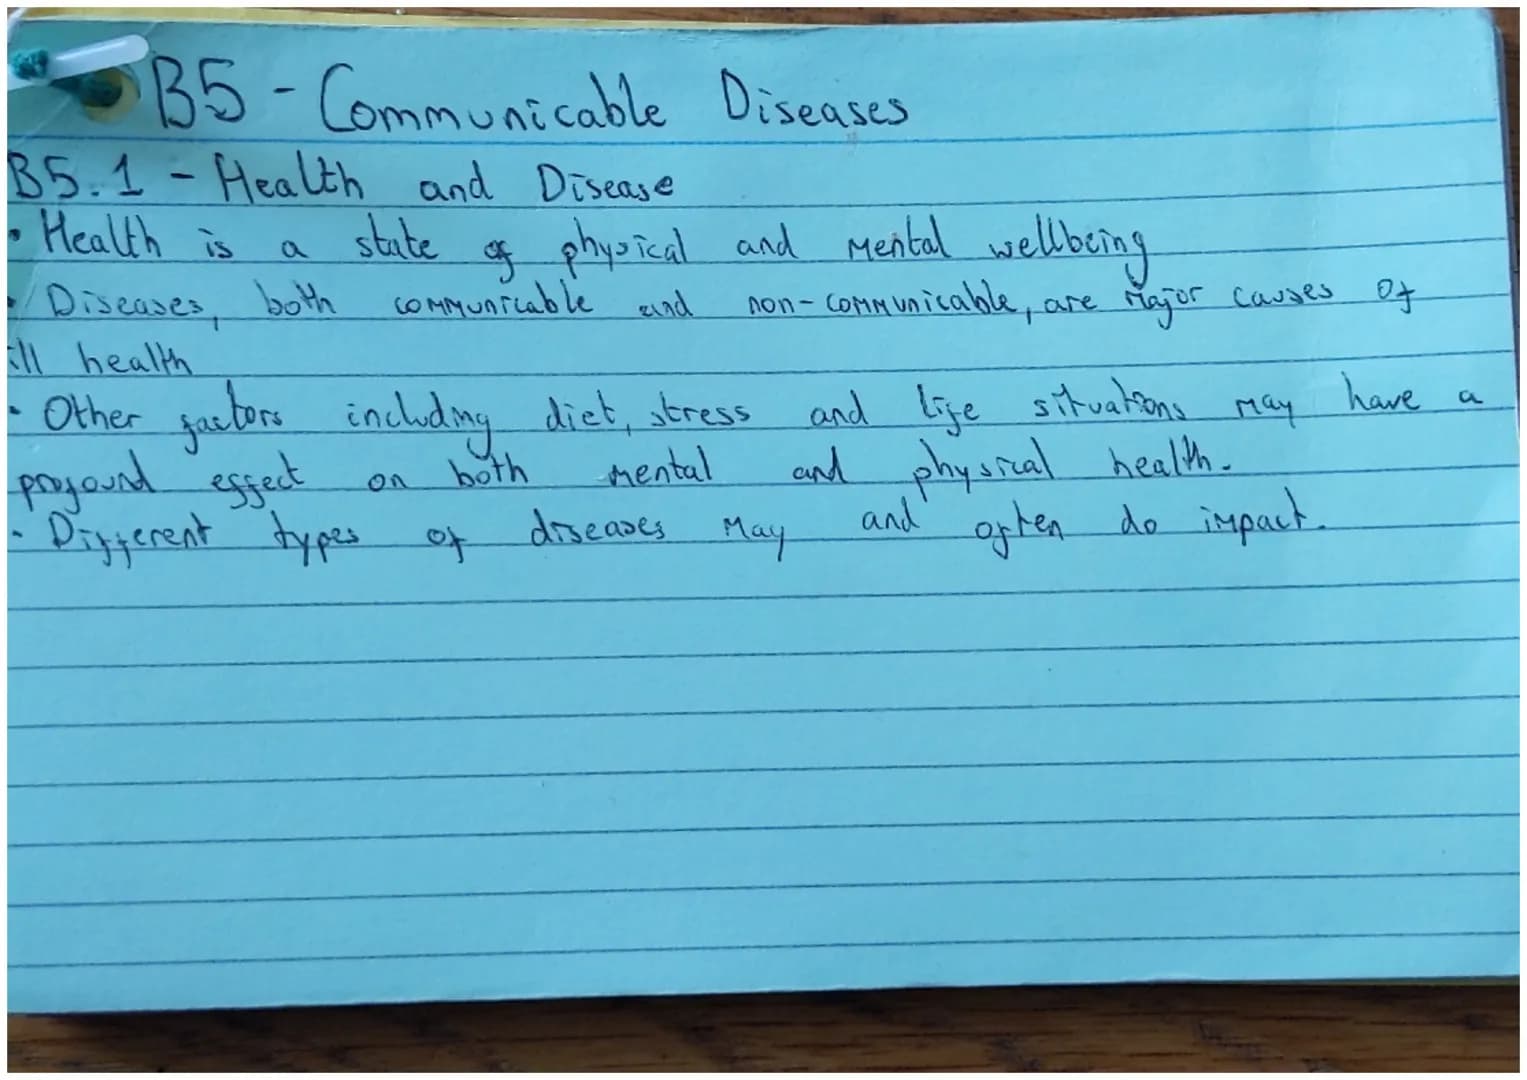 B5 - Communicable Diseases
B5.1 - Health and Disease
• Health is a state of physical and mental wellbeing
• Diseases, both communicable and non-communicable, are major causes of
ill health
• Other factors including diet, stress and life situations may have a
profound effect on both mental and physical health.
• Different types of diseases may and often do impact.